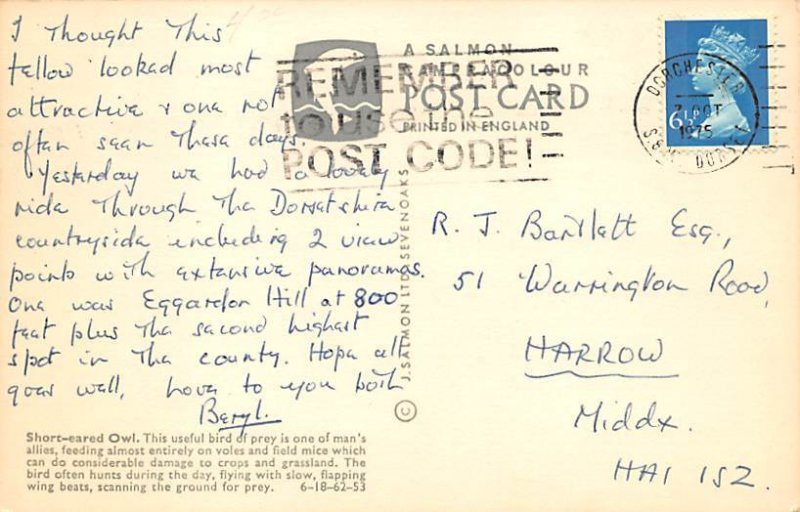 I Thought This
fellow looked most
attractive & one not
often seen These days.
Yesterday we had a lovely
ride Through The Dorsetshire
countryside including 2 view
points with extensive panoramas.
One was Eggardon Hill at 800
feet plus The second highest
spot in The county. Hope all
goes well, love to you both
Beryl.
Short-eared Owl. This useful bird of prey is one of man's
allies, feeding almost entirely on voles and field mice which
can do considerable damage to crops and grassland. The
bird often hunts during the day, flying with slow, flapping
wing beats, scanning the ground for prey. 6-18-62-53
© J. SALMON LTD. SEVENOAKS
A SALMON
CAMERACOLOUR
POST CARD
PRINTED IN ENGLAND
REMEMBER
to use the
POST CODE!
DORCHESTER
7 OCT
1975
DORSET
6½P
R. J. Bartlett Esq.,
51 Warrington Road,
HARROW
Middx.
HA1 1SZ.